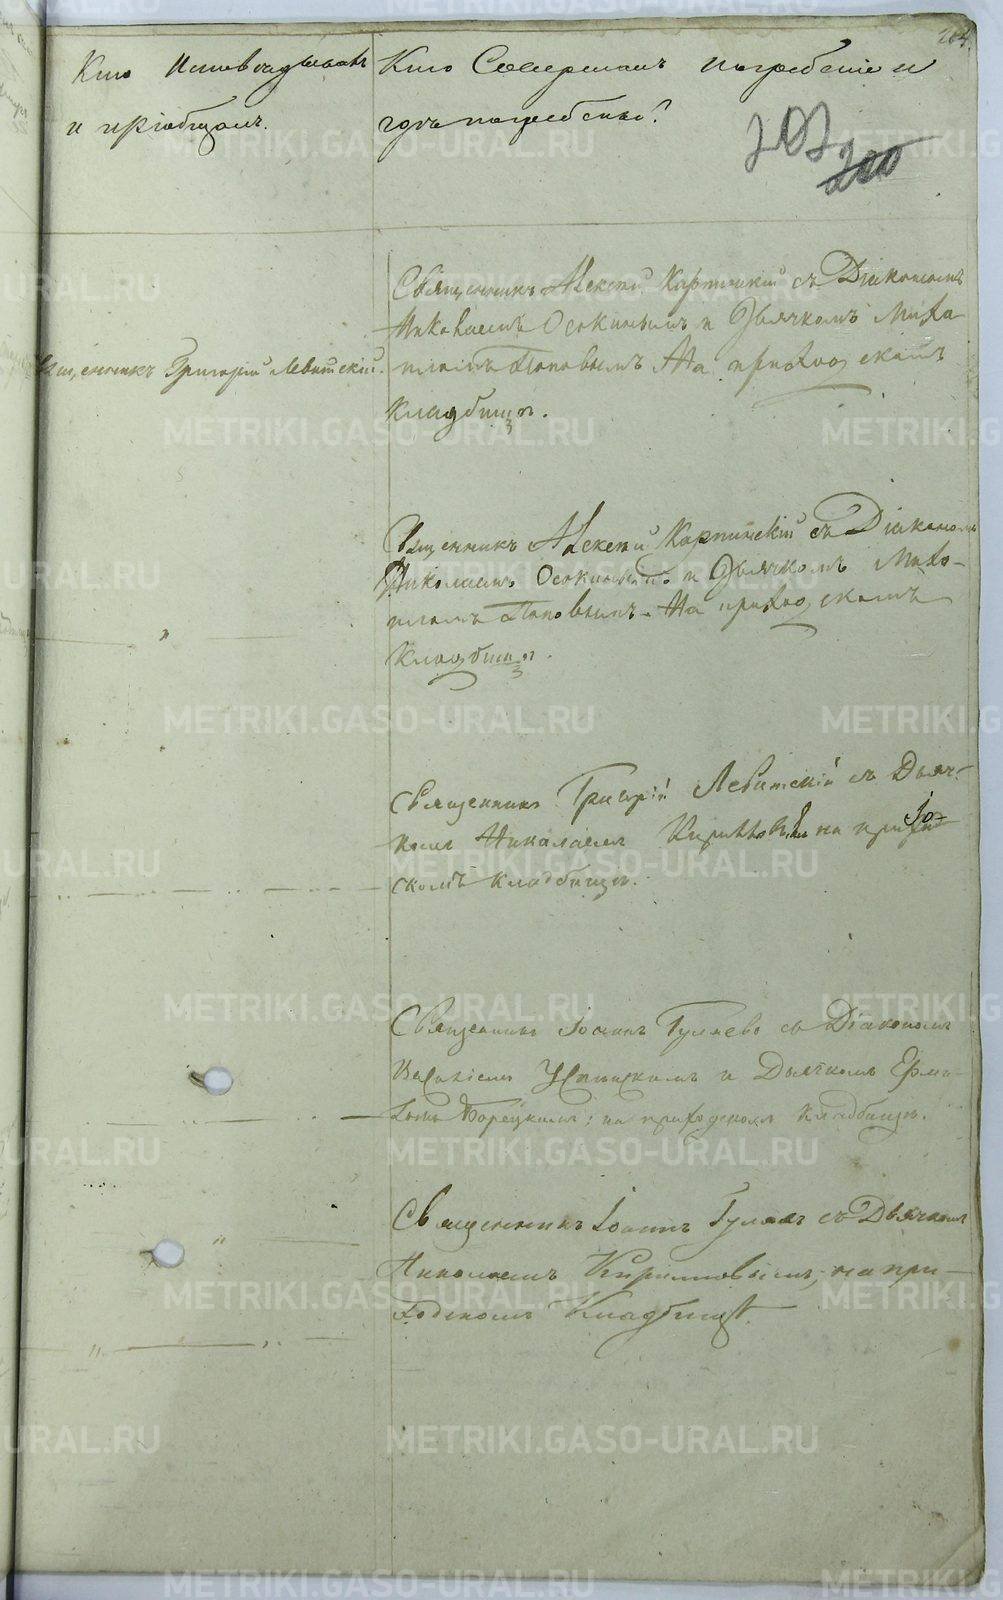 264.
Кто Исповѣдывалъ
и пріобщалъ.
Кто Совершалъ погребеніе и
гдѣ погребены?
202
200
Священникъ Григорій Левитскій.
Священникъ Алексѣй Карпинскій съ Діакономъ
Николаемъ Осокинымъ и Дьячкомъ Миха-
иломъ Поповымъ На приходскомъ
кладбищѣ.
Священникъ Алексѣй Карпинскій съ Діакономъ
Николаемъ Осокинымъ и Дьячкомъ Миха-
иломъ Поповымъ На приходскомъ
Кладбищѣ.
Священникъ Григорій Левитскій съ Дьяч-
комъ Николаемъ Кирилловымъ на прихо-
скомъ кладбищѣ.
Священникъ Іоаннъ Гуляевъ съ Діакономъ
Василіемъ и Дьячкомъ
Борецкимъ; на приходскомъ кладбищѣ.
Священникъ Іоаннъ Гуляевъ съ Дьячкомъ
Николаемъ Кирилловымъ, на при-
ходскомъ Кладбищѣ.
METRIKI.GASO-URAL.RU